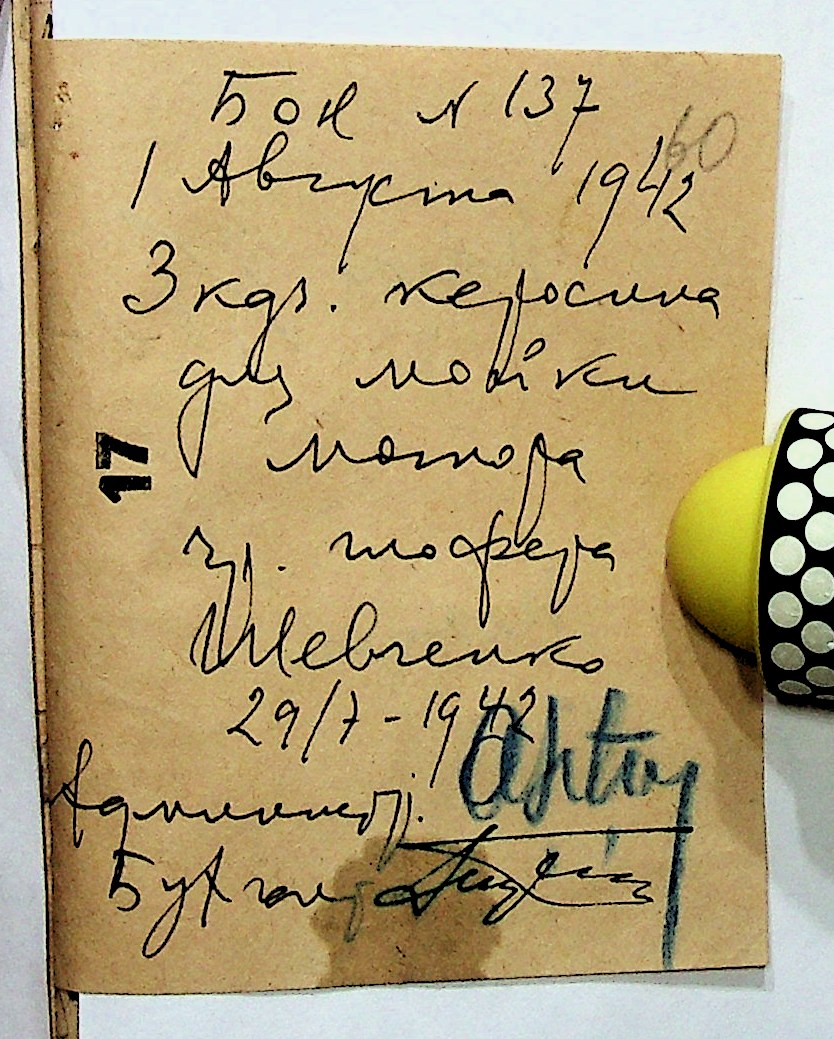 Бон N 137
60
1 Августа 1942
3 кгдз. керосина
для мойки
мотора
17
гр. шофера
Шевченко
29/7-1942
Администр.
Бухгалтер